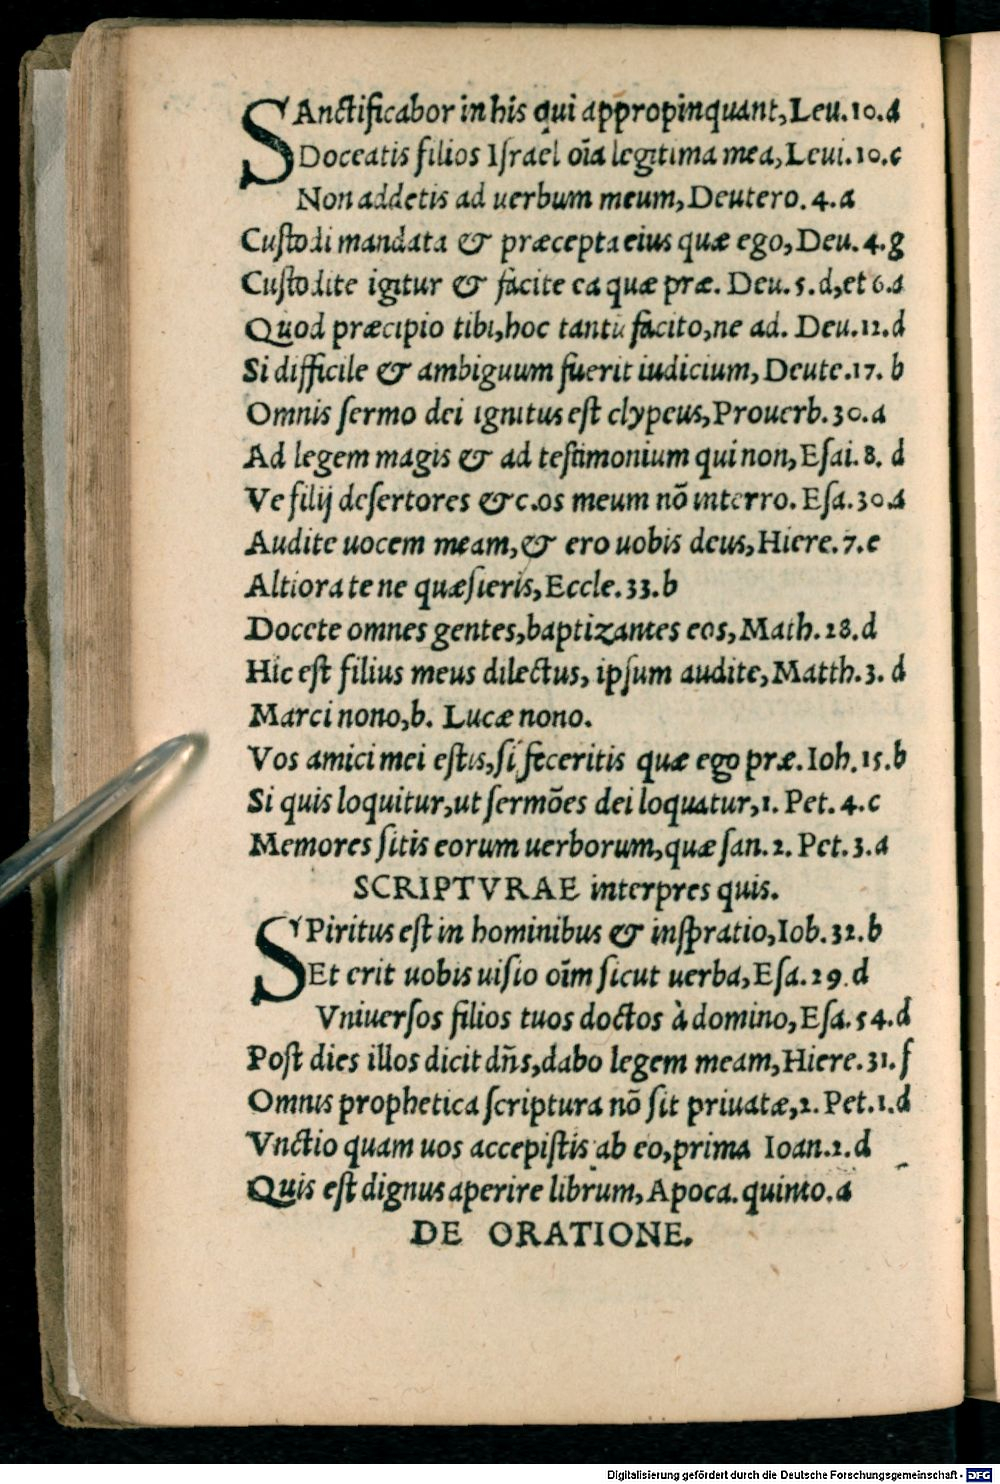 SAnctificabor in his qui appropinquant, Leu. 10. a
Doceatis filios Israel oĩa legitima mea, Leui. 10. c
Non addetis ad uerbum meum, Deutero. 4. a
Custodi mandata & præcepta eius quæ ego, Deu. 4. g
Custodite igitur & facite ea quæ præ. Deu. 5. d, et 6. a
Quod præcipio tibi, hoc tantũ facito, ne ad. Deu. 12. d
Si difficile & ambiguum fuerit iudicium, Deute. 17. b
Omnis sermo dei ignitus est clypeus, Prouerb. 30. a
Ad legem magis & ad testimonium qui non, Esai. 8. d
Ve filij desertores &c. os meum nõ interro. Esa. 30. a
Audite uocem meam, & ero uobis deus, Hiere. 7. e
Altiora te ne quæsieris, Eccle. 33. b
Docete omnes gentes, baptizantes eos, Math. 28. d
Hic est filius meus dilectus, ipsum audite, Matth. 3. d
Marci nono, b. Lucæ nono.
Vos amici mei estis, si feceritis quæ ego præ. Ioh. 15. b
Si quis loquitur, ut sermões dei loquatur, 1. Pet. 4. c
Memores sitis eorum uerborum, quæ san. 2. Pet. 3. a
SCRIPTVRAE interpres quis.
SPiritus est in hominibus & inspratio, Iob. 32. b
Et erit uobis uisio oĩm sicut uerba, Esa. 29. d
Vniuersos filios tuos doctos à domino, Esa. 54. d
Post dies illos dicit dñs, dabo legem meam, Hiere. 31. f
Omnis prophetica scriptura nõ sit priuatæ, 2. Pet. 1. d
Vnctio quam uos accepistis ab eo, prima Ioan. 2. d
Quis est dignus aperire librum, Apoca. quinto. a
DE ORATIONE.
Digitalisierung gefördert durch die Deutsche Forschungsgemeinschaft - DFG